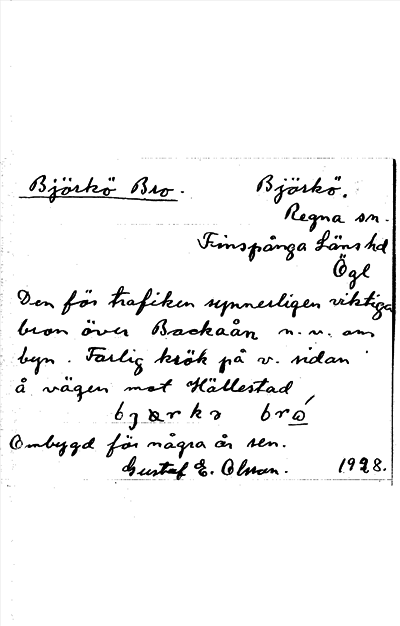 Björkö Bro. Björkö.
Regna sn.
Finspånga Läns hd
Ögl
Den för trafiken synnerligen viktiga
bron över Backaån n. v. om
byn. Farlig krök på v. sidan
å vägen mot Hällestad
Ombygd för några år sen.
Gustaf E. Olsson. 1928.